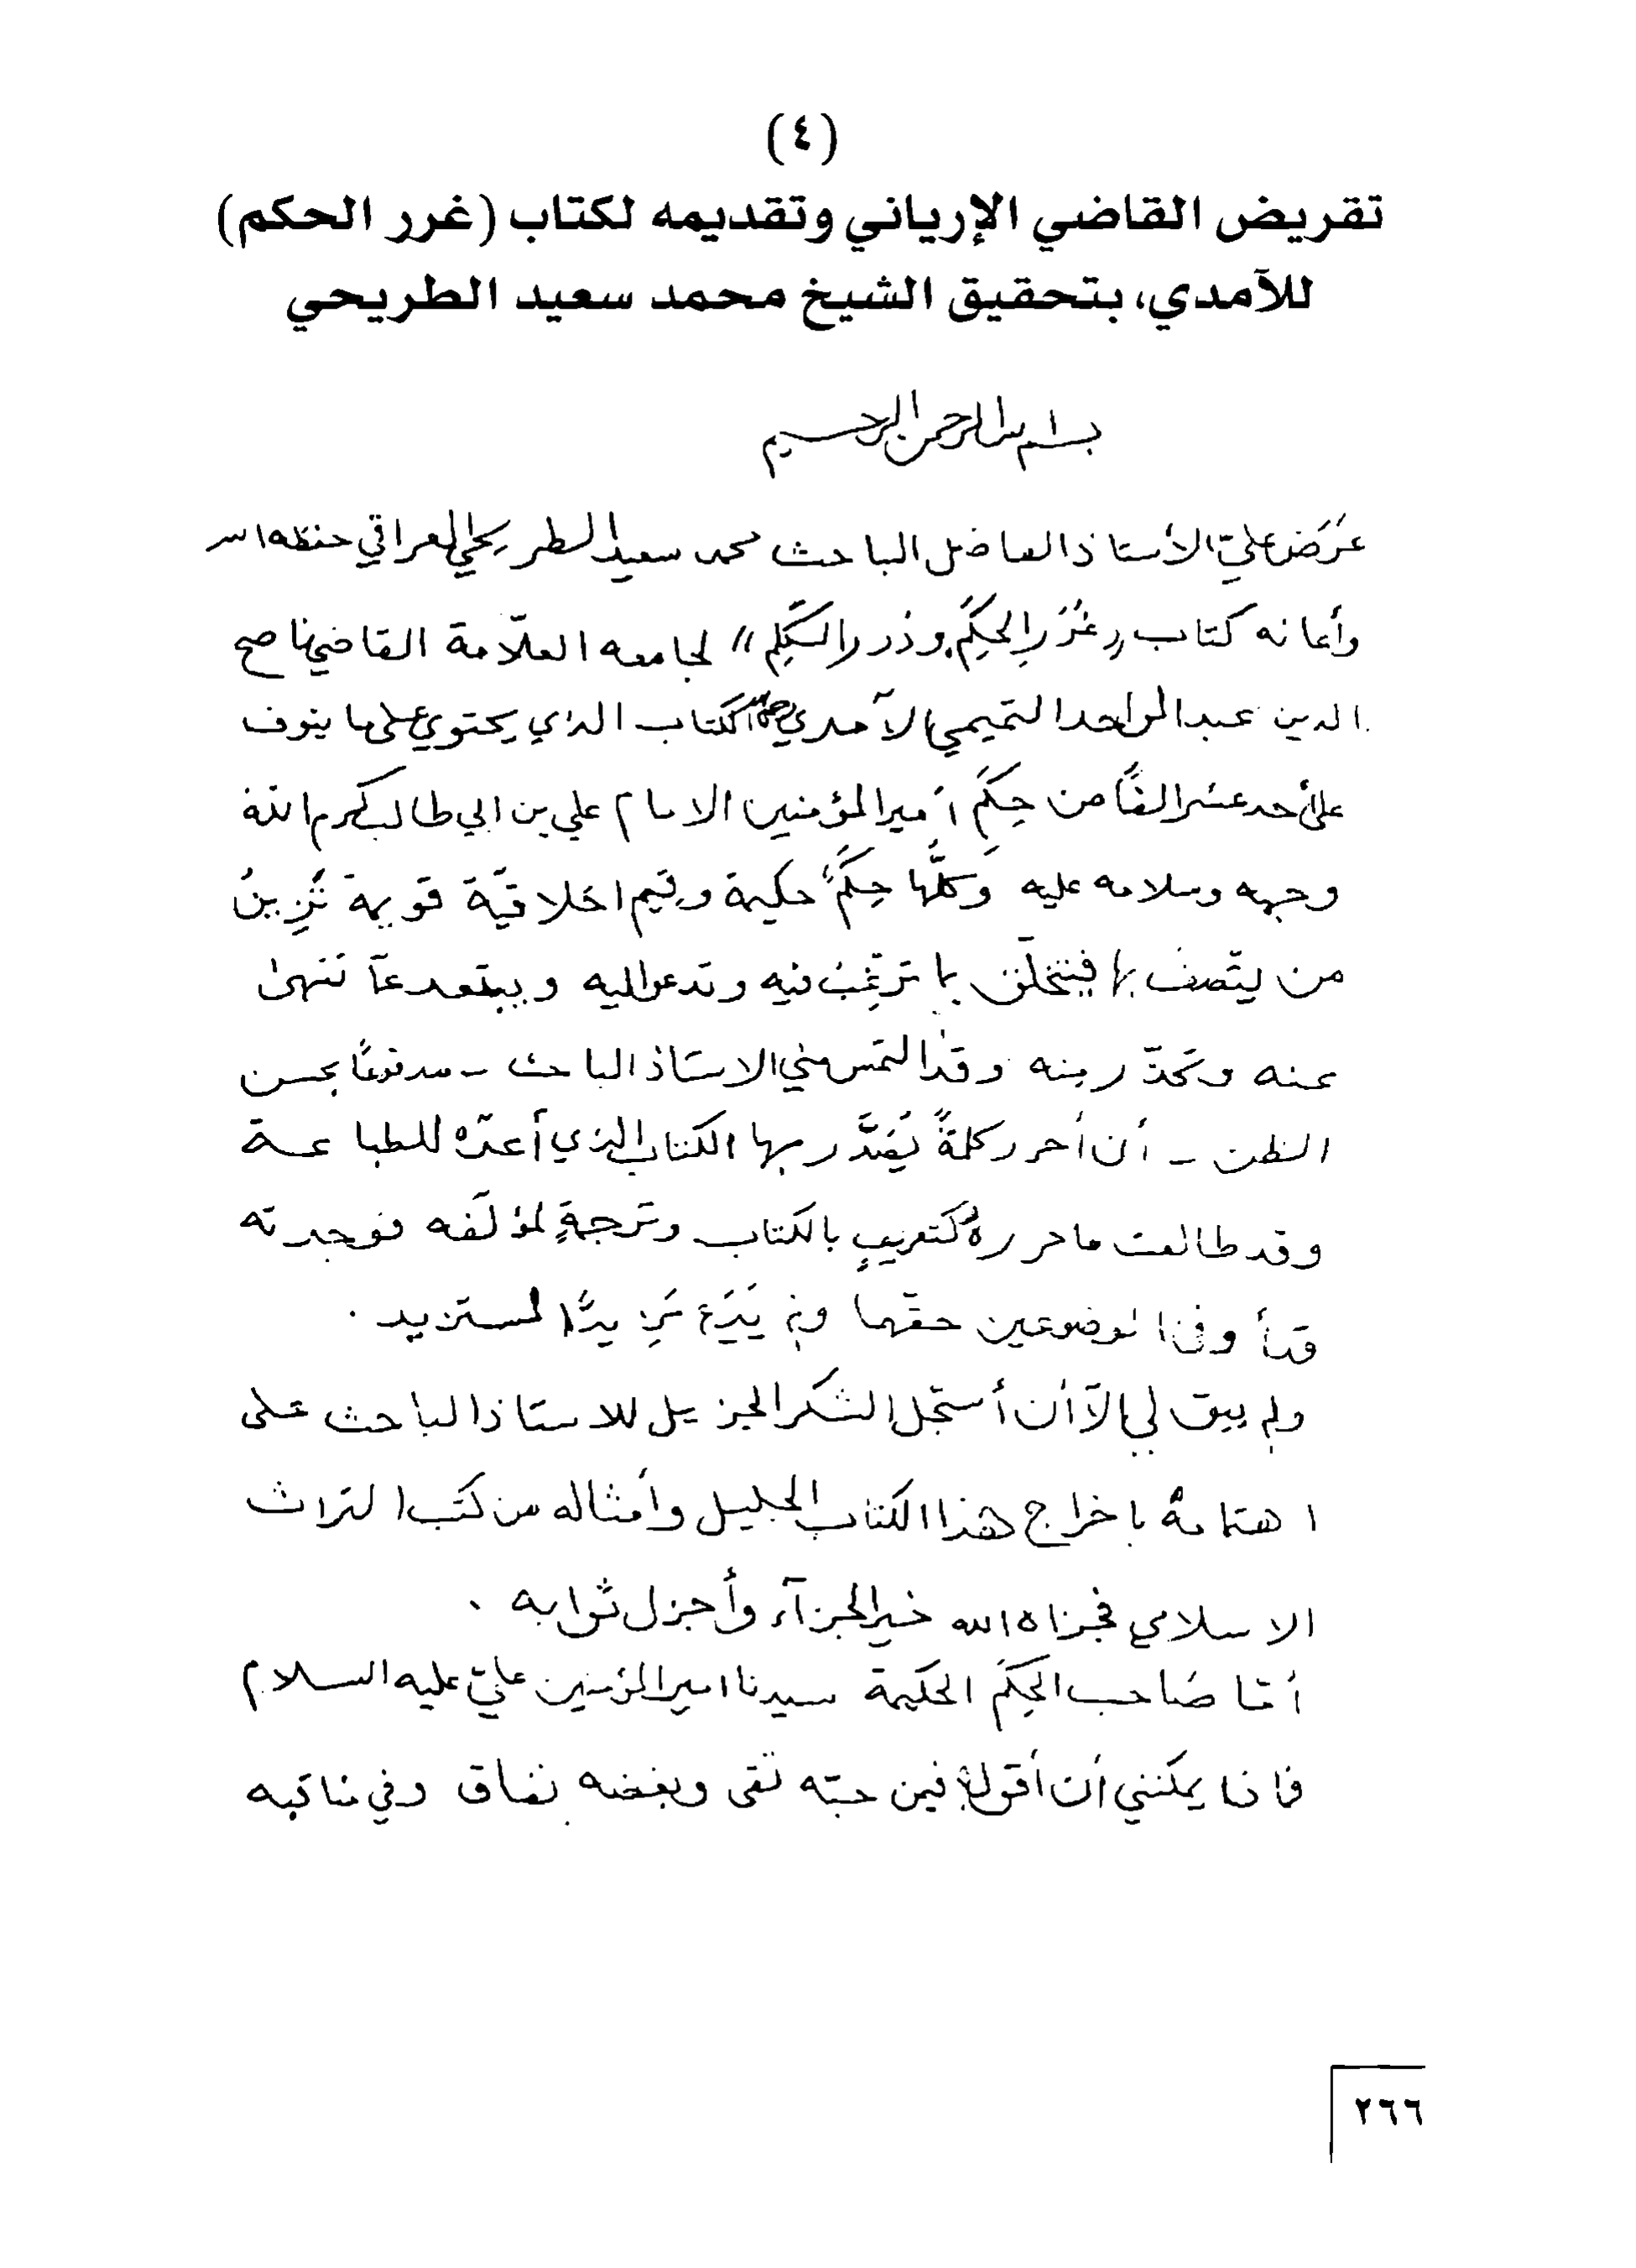 (٤)
تقريض القاضي الإرياني وتقديمه لكتاب (غرر الحكم)
للآمدي، بتحقيق الشيخ محمد سعيد الطريحي
بسم الله الرحمن الرحيم
عَرَضَ عليّ الأستاذ الفاضل الباحث محمد سعيد الطريحي العراقي حفظه الله
وأعانه كتاب «غُرَرِ الحِكَم ودُرر الكَلِم» لجامعه العلّامة القاضي ناصح
الدين عبد الواحد التميمي الآمدي رحمه الله الكتاب الذي يحتوي على ما ينوف
على أحد عشر الفًا من حِكَم أمير المؤمنين الامام علي بن ابي طالب كرم الله
وجهه وسلامه عليه وكلُّها حِكَمٌ حكيمة وقيم اخلاقيّة قويمة تُزِينُ
من يتّصف بها فيتخلّق بما ترغّبُ فيه وتدعو اليه ويبتعد عمّا تنهى
عنه وتحذّر منه وقد التمس مني الاستاذ الباحث - مدفوعًا بحسن
الظن - أن أحرر كلمةً يُصَدَّر بها الكتاب الذي أعدّه للطباعة
وقد طالعت ما حرره كتعريفٍ بالكتاب وترجمةٍ لمؤلّفه فوجدته
قد أوفى الموضوعين حقهما ولم يَدَع مَزيدًا لمستزيد .
ولم يبق لي الّا أن أسجّل الشكر الجزيل للاستاذ الباحث على
اهتمامه باخراج هذا الكتاب الجليل وأمثاله من كتب التراث
الاسلامي فجزاه الله خير الجزآء وأجزل ثوابه .
أمّا صَاحب الحِكَم الحكيمة سيدنا امير المؤمنين عليّ عليه السلام
فماذا يمكنني أن أقول فيمن حبّه تقى وبغضه نفاق وفي مناقبه
٢٦٦